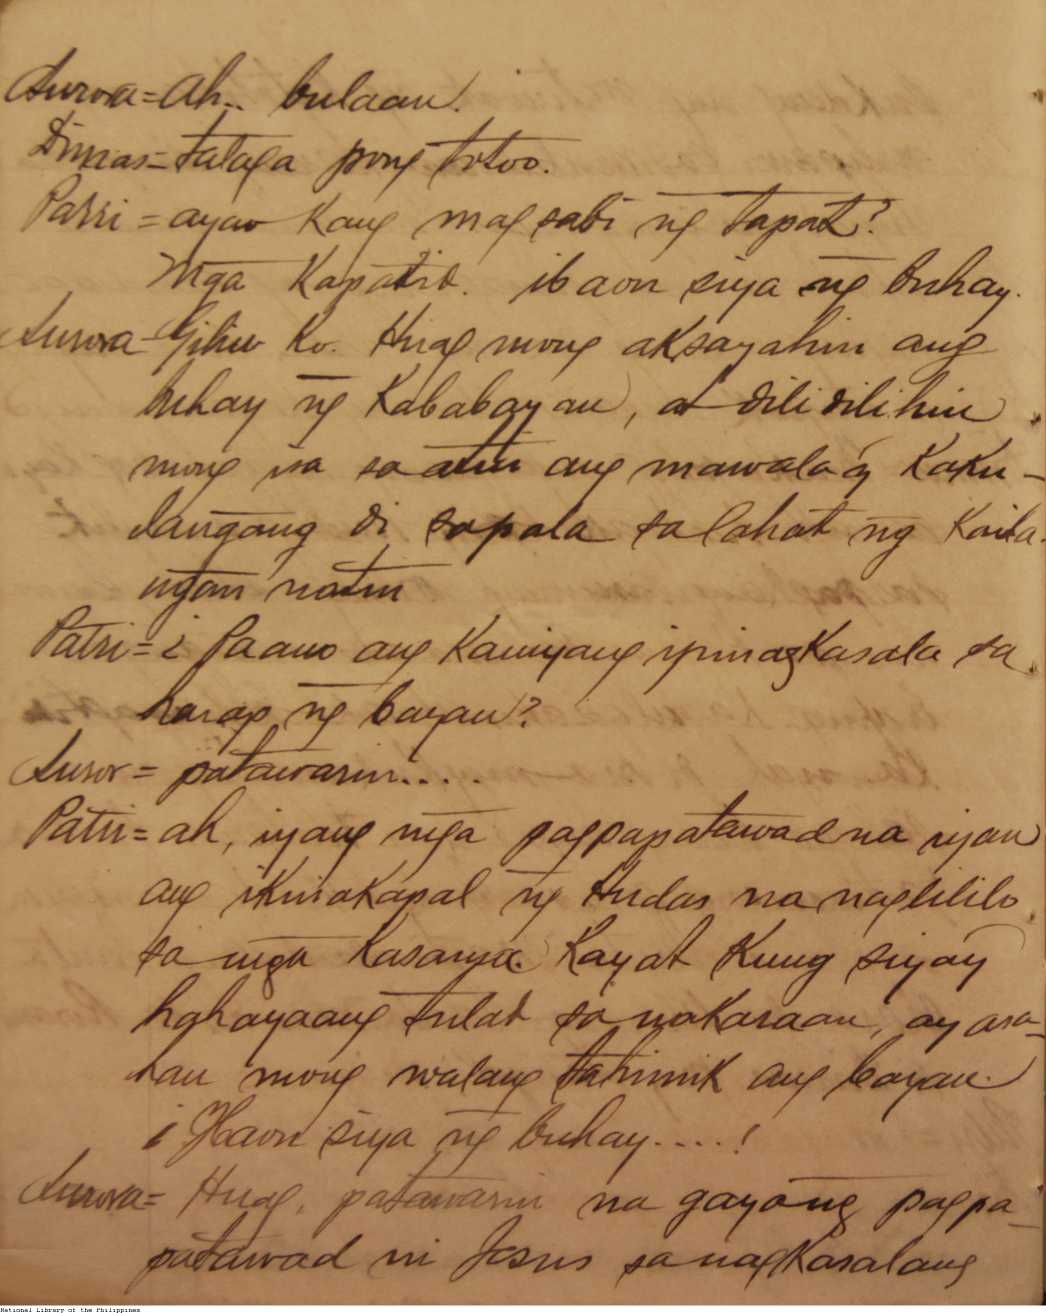 Aurora = Ah.. bulaan.
Dimas = talaga pong totoo.
Patri = ayaw kang mag sabi ng tapat?
Mga Kapatid. ibaon siya ng buhay.
Aurora = Giliw ko. Huag mong aksayahin ang
buhay ng Kababayan, at dili dilihin
mong isa sa atin ang mawala'y Kaku-
langang di sapala sa lahat ng Kaila-
ngan natin
Patri = ¿Paano ang Kaniyang ipinagkasala sa
harap ng bayan?
Auror = patawarin.....
Patri = ah, iyang mga pagpapatawad na iyan
ang ikinakapal ng Hudas na naglililo
sa mga Kasama. Kayat Kung siya'y
hahayaang tulad sa nakaraan, ay asa-
han mong walang tahimik ang bayan.
¡Ibaon siya ng buhay....!
Aurora = Huag, patawarin na gayong pagpa-
patawad ni Jesus sa nagkasalang
National Library of the Philippines